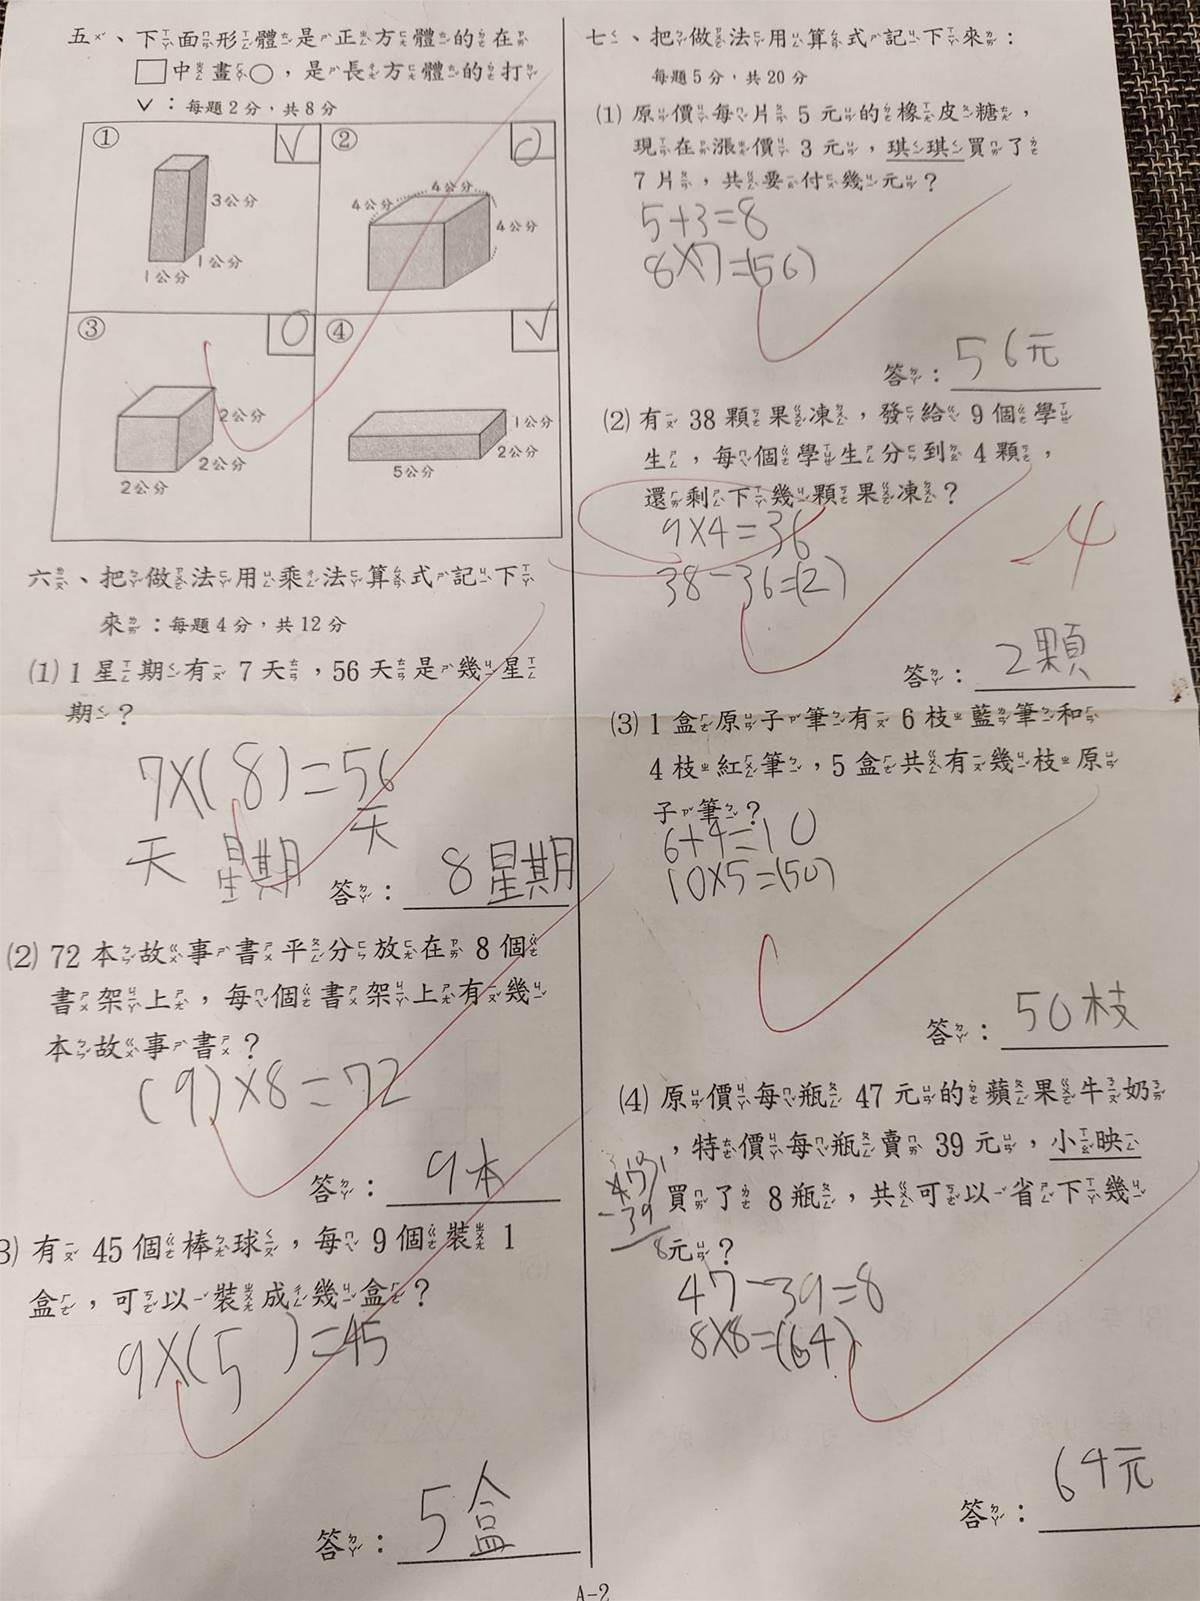 五、下面形體是正方體的在
□中畫○，是長方體的打
✓：每題2分，共8分
① ✓
3公分
1公分
1公分
② ○
4公分
4公分
4公分
③ ○
2公分
2公分
2公分
④ ✓
1公分
2公分
5公分
六、把做法用乘法算式記下
來：每題4分，共12分
(1) 1星期有7天，56天是幾星
期？
7×(8)=56
天 星期 天
答：8星期
(2) 72本故事書平分放在8個
書架上，每個書架上有幾
本故事書？
(9)×8=72
答：9本
3) 有45個棒球，每9個裝1
盒，可以裝成幾盒？
9×(5)=45
答：5盒
七、把做法用算式記下來：
每題5分，共20分
(1) 原價每片5元的橡皮糖，
現在漲價3元，琪琪買了
7片，共要付幾元？
5+3=8
8×7=(56)
答：56元
(2) 有38顆果凍，發給9個學
生，每個學生分到4顆，
還剩下幾顆果凍？
9×4=36
38-36=(2)
-4
答：2顆
(3) 1盒原子筆有6枝藍筆和
4枝紅筆，5盒共有幾枝原
子筆？
6+4=10
10×5=(50)
答：50枝
(4) 原價每瓶47元的蘋果牛奶
，特價每瓶賣39元，小映
買了8瓶，共可以省下幾
元？
47
-39
8
47-39=8
8×8=(64)
答：64元
A-2